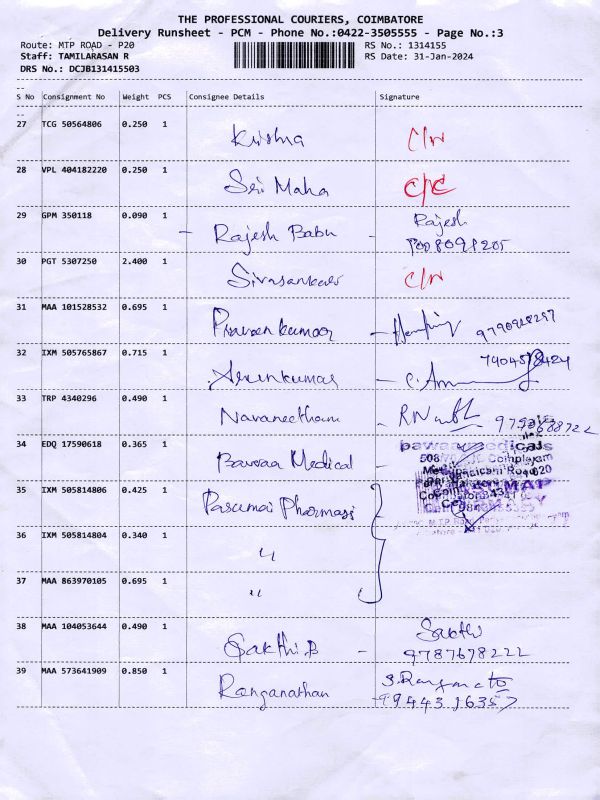 THE PROFESSIONAL COURIERS, COIMBATORE
Delivery Runsheet - PCM - Phone No.:0422-3505555 - Page No.:3
Route: MTP ROAD - P20 RS No.: 1314155
Staff: TAMILARASAN R RS Date: 31-Jan-2024
DRS No.: DCJB131415503
S No Consignment No Weight PCS Consignee Details Signature
27 TCG 50564806 0.250 1 Krishna
28 VPL 404182220 0.250 1 Sri Maha
29 GPM 350118 0.090 1 - Rajesh Babu - Rajesh
8098205
30 PGT 5307250 2.400 1
31 MAA 101528532 0.695 1 Praveen Kumar -
32 IXM 505765867 0.715 1 Arunkumar -
33 TRP 4340296 0.490 1 Navaneetham -
34 EDQ 17590618 0.365 1 Medical -
35 IXM 505814806 0.425 1 Pasumai Pharmasy
36 IXM 505814804 0.340 1 "
37 MAA 863970105 0.695 1 "
38 MAA 104053644 0.490 1 Sakthi B - Sakthi
9787678222
39 MAA 573641909 0.850 1 Ranganathan